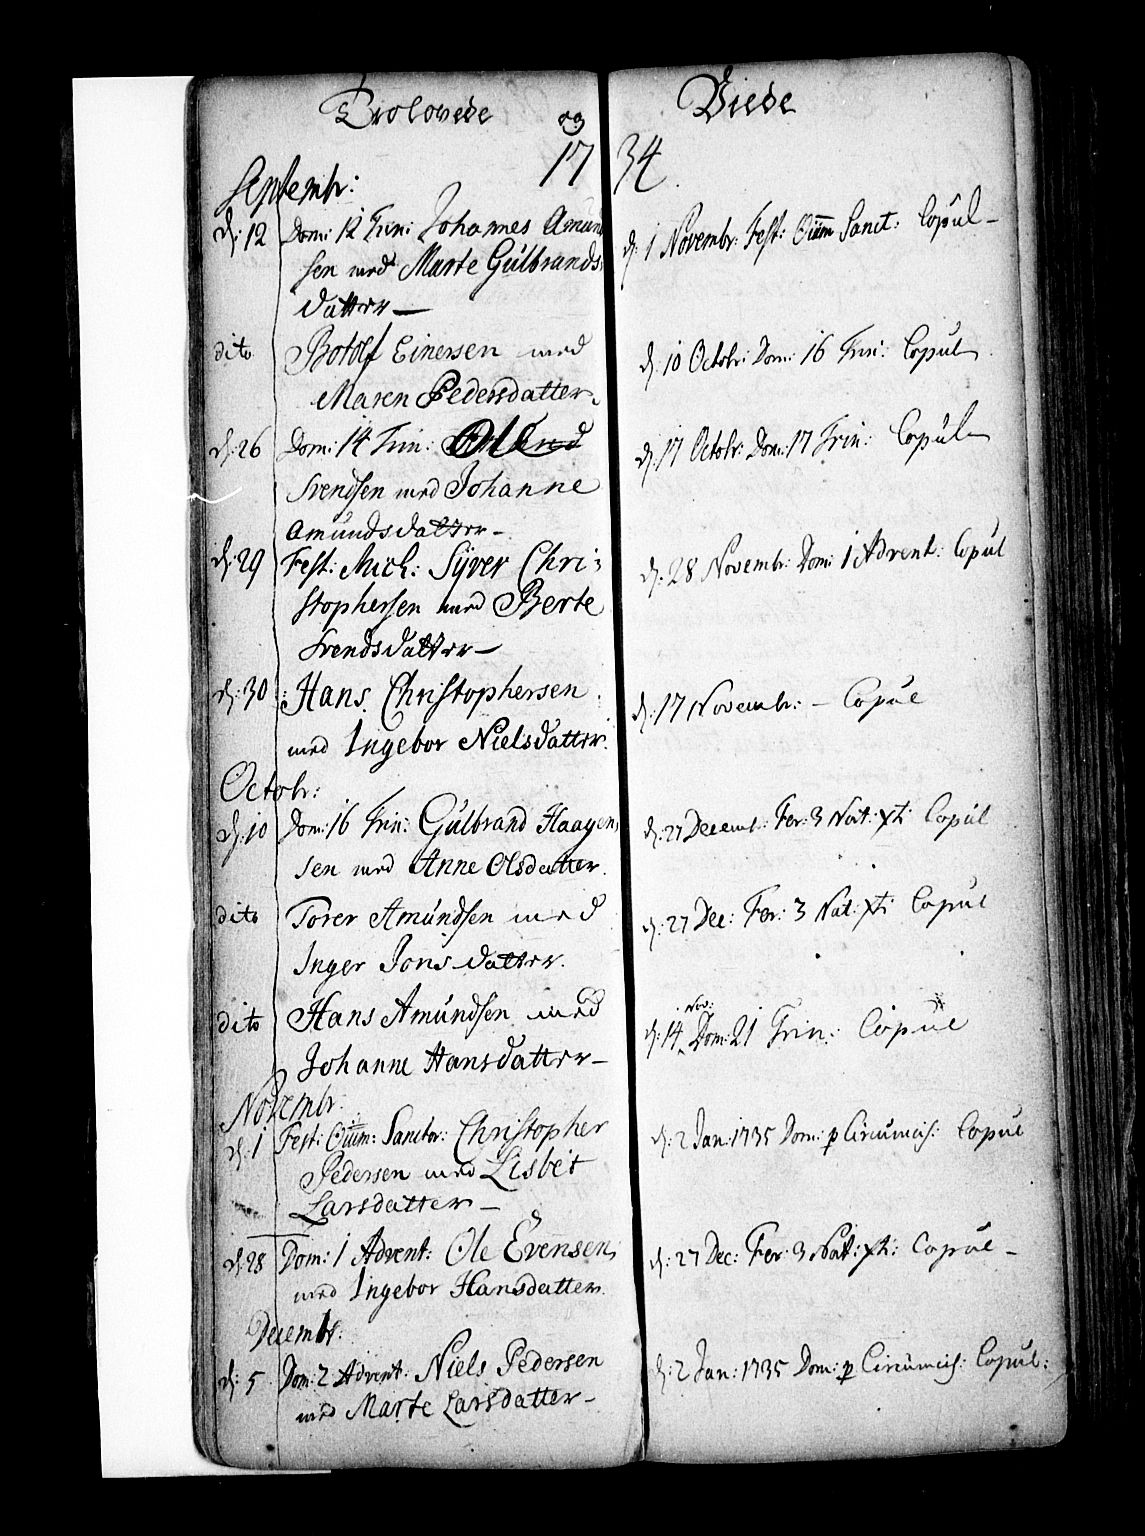 Trolovede og Viede
1734
Septembr:
d: 12 Dom: 12 Trin: Johannes Amund
sen med Marte Gülbrands
datter — d: 1 Novembr: Fest: Oium Sanct: Copul —
dito Botolf Einersen med
Maren Pedersdatter. d: 10 Octobr: Dom: 16 Trin: Copul
d: 26 Dom: 14 Trin: Ole
Svendsen med Johanne
Amundsdatter — d: 17 Octobr: Dom: 17 Trin: Copul
d: 29 Fest: Mich: Syver Chri:
stophersen med Berte
Svendsdatter — d: 28 Novembr: Dom: 1 Advent: Copul
d: 30 Hans Christophersen
med Ingebor Nielsdatter. d: 17 Novembr: — Copul
Octobr:
d: 10 Dom: 16 Trin: Gülbrand Haagen
sen med Anne Olsdatter. d: 27 Decemb: Fer: 3 Nat: xti Copul
dito Torer Amündsen med
Inger Jons datter. d: 27 Dec: Fer: 3 Nat: xti Copul
dito Hans Amündsen med
Johanne Hansdatter — d: 14 Nov: Dom: 21 Trin: Copul
Novembr.
d: 1 Fest: Oium: Sanctor: Christopher
Pedersen med Lisbet
Larsdatter — d: 2 Jan: 1735 Dom: p Circumcis: Copul
d: 28 Dom: 1 Advent: Ole Evensen
med Ingebor Hansdatter. d: 27 Dec: Fer: 3 Nat: xti: Copul —
Decembr:
d: 5 Dom: 2 Advent: Niels Pedersen
med Marte Larsdatter — d: 2 Jan: 1735 Dom: p Circumcis: Copul: